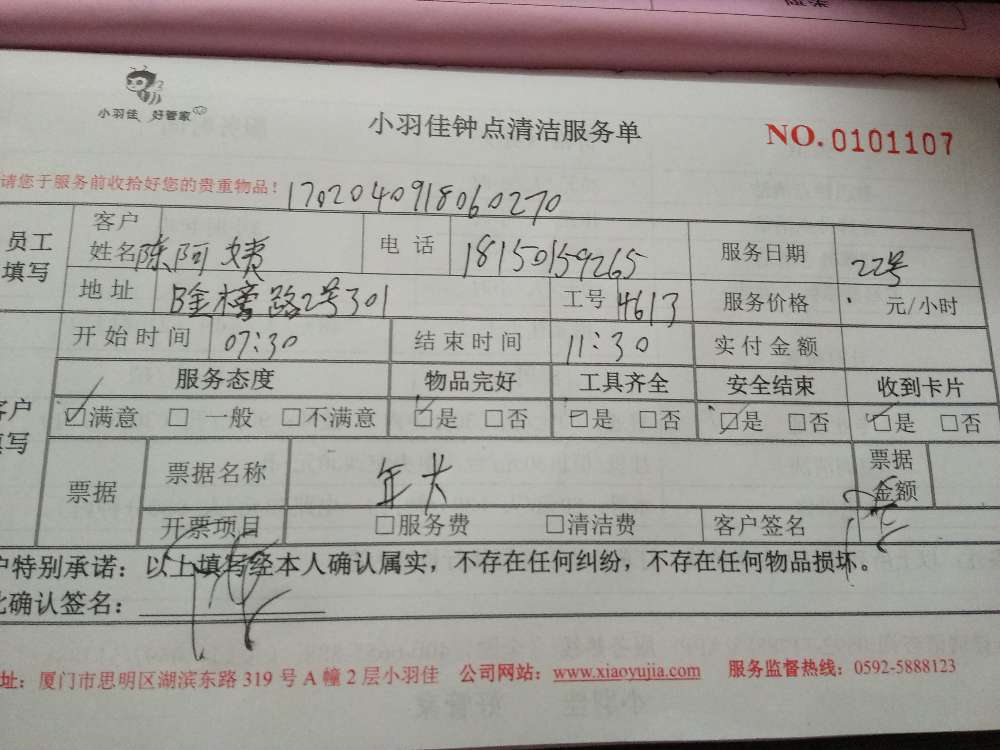 小羽佳 好管家
小羽佳钟点清洁服务单
NO.0101107
请您于服务前收拾好您的贵重物品！ 1702040918060270
员工填写 客户姓名 陈阿姨 电话 18150159265 服务日期 22号
地址 金榜路2号301 工号 4613 服务价格 元/小时
开始时间 07:30 结束时间 11:30 实付金额
服务态度 物品完好 工具齐全 安全结束 收到卡片
客户填写 ☑满意 □一般 □不满意 ☑是 □否 ☑是 □否 ☑是 □否 ☑是 □否
票据 票据名称 年卡 票据金额
开票项目 □服务费 □清洁费 客户签名
户特别承诺：以上填写经本人确认属实，不存在任何纠纷，不存在任何物品损坏。
此确认签名：
址：厦门市思明区湖滨东路 319 号 A 幢 2 层小羽佳 公司网站：www.xiaoyujia.com 服务监督热线：0592-5888123